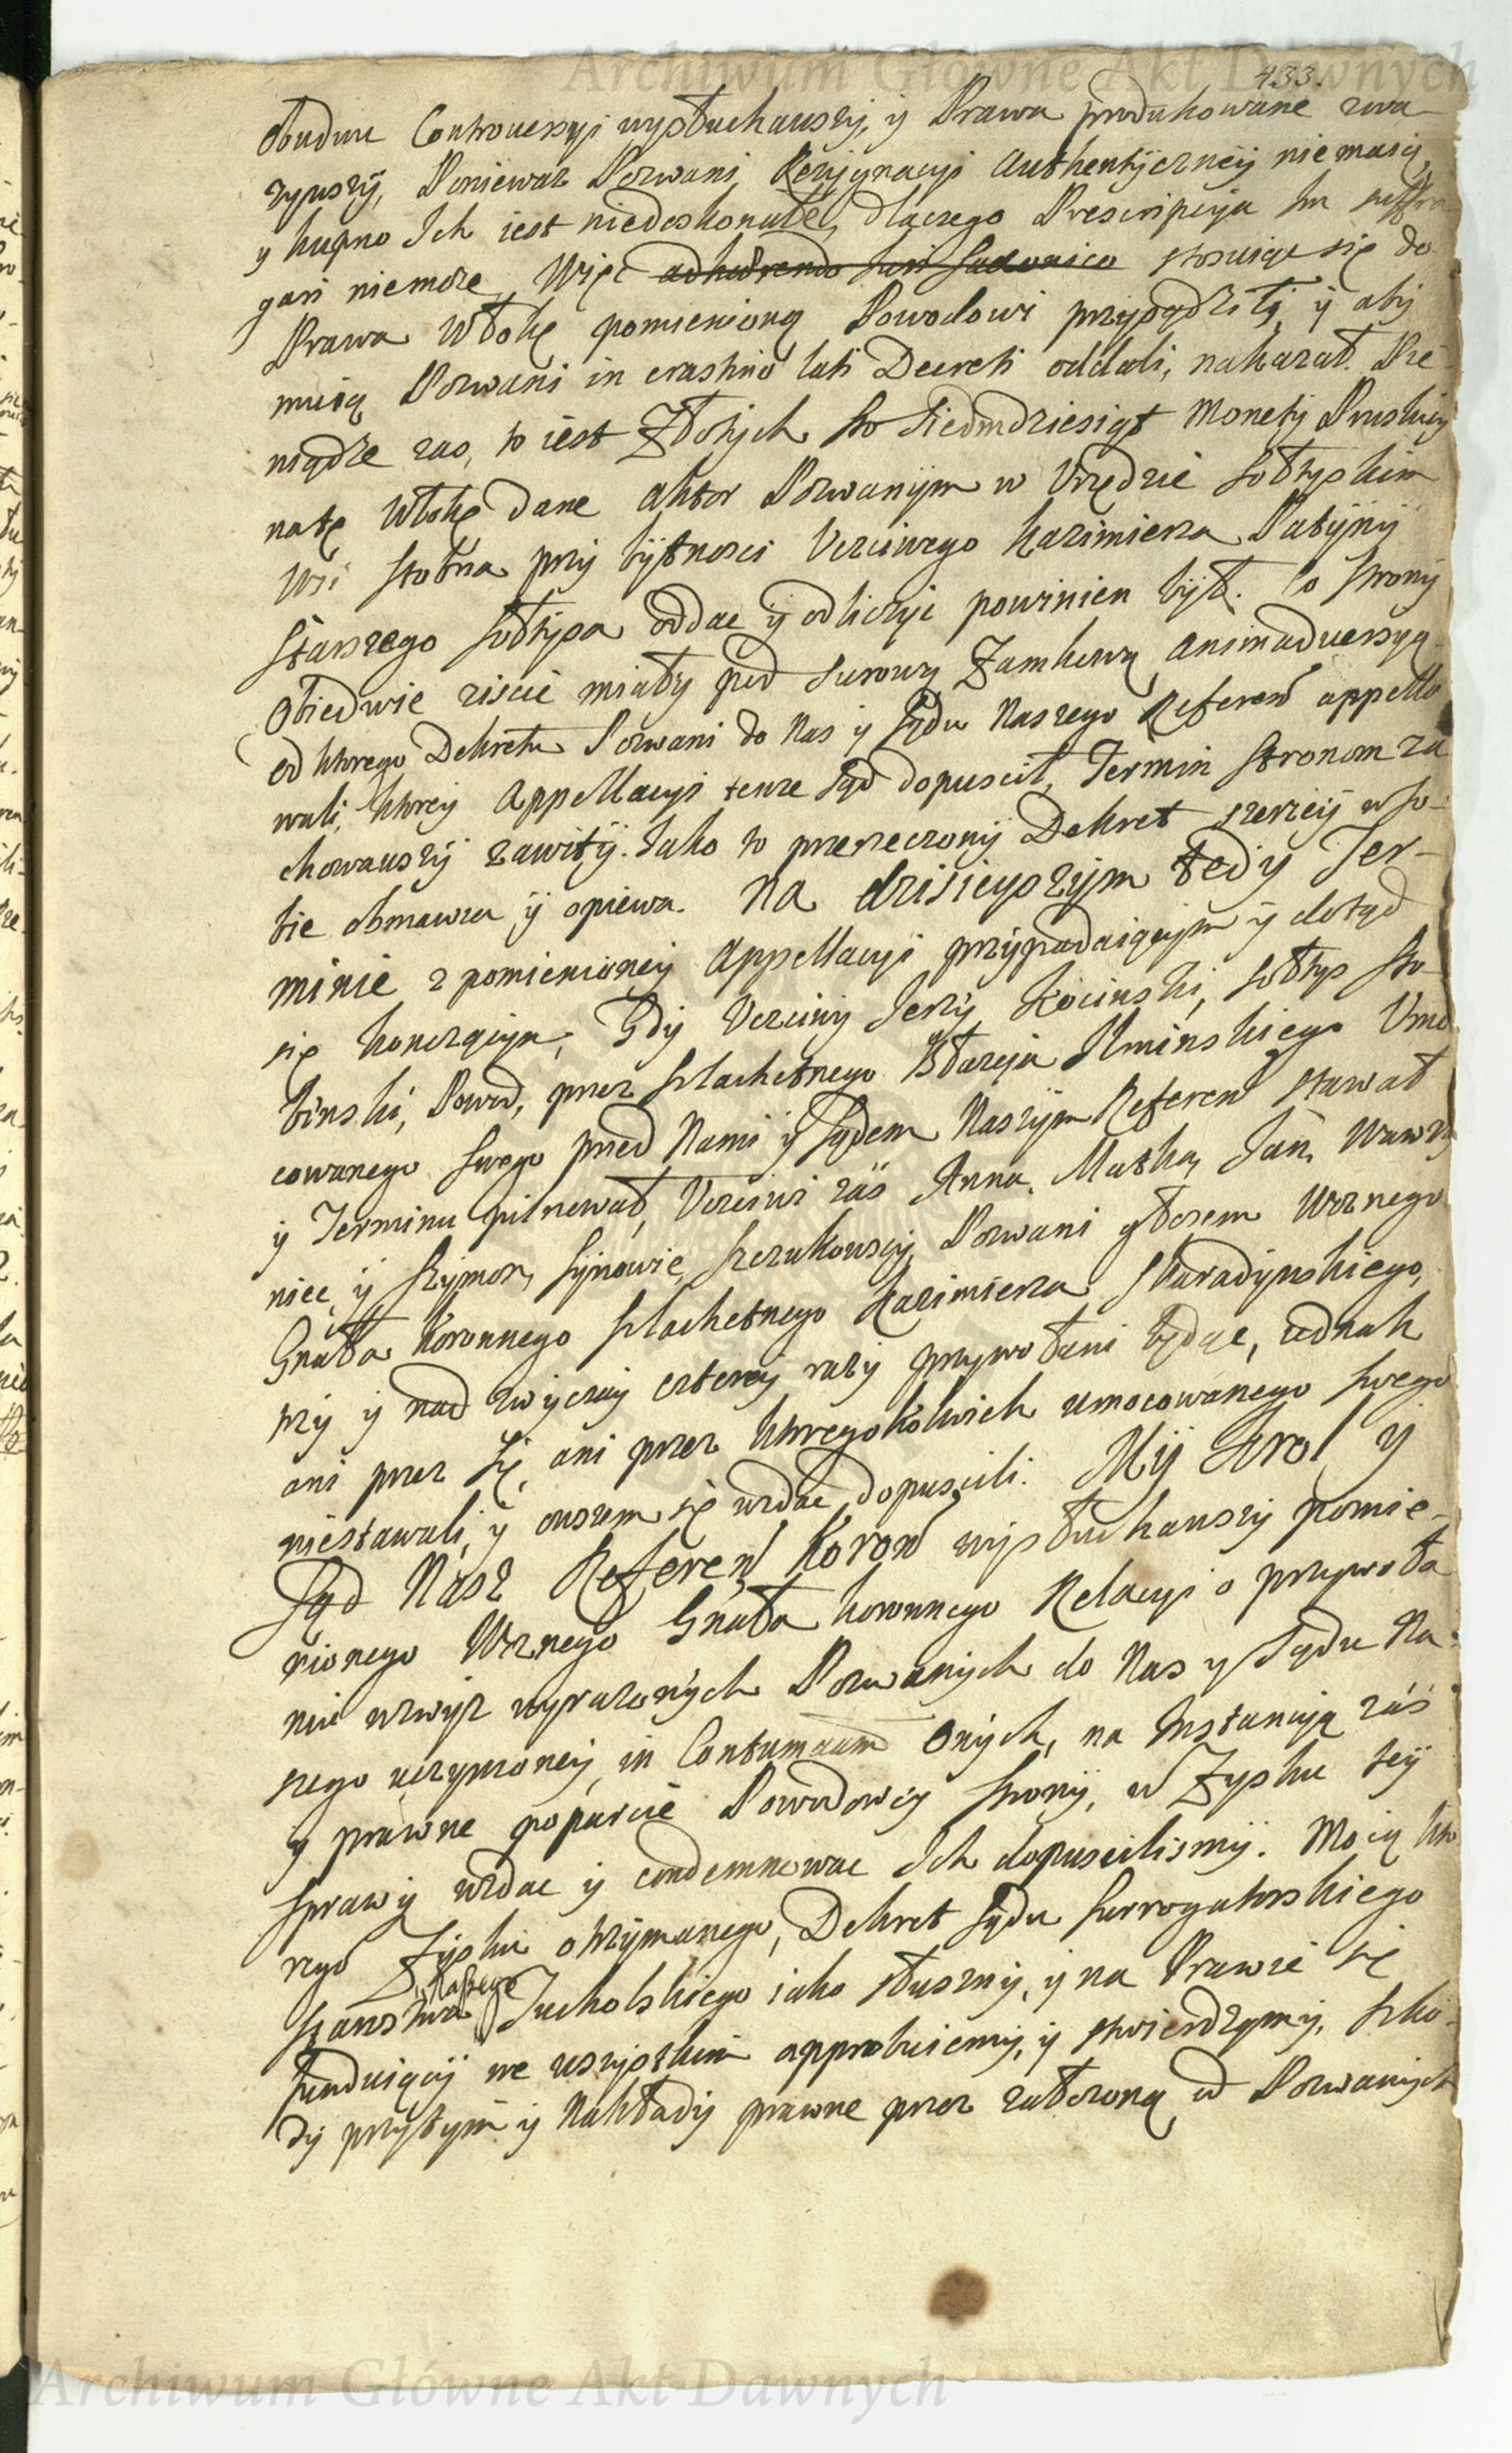 433.
Obudwu Controuersyi wysłuchawszy, y Prawa produkowane zwa-
zywszy, Poniewaz Pozwani Rezygnacyi Authentyczney nie maią,
y kupno Ich iest niedoskonałe, dlaczego Prescripcya Im suffra
gari niemoze, Więc adhærendo Juri Saxonico stosuiąc się do
Prawa Włokę pomienioną Powodowi przysądził, y aby
mu ią Pozwani in crastino lati Decreti oddali, nakazał. Pie-
niądze zas, to iest Złotych sto siedmdziesiąt Monety Pruskiey
na tę Włokę dane Aktor Pozwanym w Vrzędzie Sołtyskim
Wsi Stobna przy bytnosci Vczciwego Kazimierza Patyny
Starszego Sołtysa oddac y odliczyc powinien był. Co Strony
Obiedwie ziscic miały pod surową Zamkową animaduersyą
od ktorego Dekretu Pozwani do Nas y Sądu Naszego Referen appello
wali, ktorey Appellacyi tenze Sąd dopuscił, Termin Stronom za
chowawszy zawity. Jako to przerzeczony Dekret szerzey w so-
bie obmawia y opiewa. Na dzisieyszym tedy Ter-
minie z pomienioney Appellacyi przypadaiącym y dotąd
się konczącym, Gdy Vczciwy Jerzy Kocinski, Sołtys Sto-
binski, Powod, przez Szlachetnego Błazeja Kminskiego Vmo
cowanego Swego przed Nami y Sądem Naszym Referen stawał
y Terminu pilnował, Vczciwi zás Anna Matka, Jan, Wawrzy
niec, y Szymon, Synowie, Szczukowscy, Pozwani głosem Woznego
Gnała Koronnego Szlachetnego Kazimierza Skaradynskiego,
trzy y nad zwyczay cztery razy przywołani będąc, iednak
ani przez się, ani przez ktoregokolwiek umocowanego swego
niestawali, y owszem się wzdac dopuscili. My Krol y
Sąd Nasz Referen Koron wysłuchawszy pomie-
nionego Woznego Gnała koronnego Relacyi o przywoła
niu wzwyz wyrazonych Pozwanych do Nas y Sądu Na-
szego uczynioney, in Contumaciam Onych, na Instancyą zás
y prawne poparcie Powodowey Strony, w Zysku tey
sprawy wzdac y condemnowac Ich dopuscilismy. Mocą kto
rego Zysku otrzymanego, Dekret Sądu Surrogatorskiego
Starostwa Naszego Tucholskiego iako słuszny, y na Prawie się
funduiący we wszystkim approbuiemy, y stwierdzamy, szko-
dy przytym y Nakłady prawne przez załozoną od Pozwanych